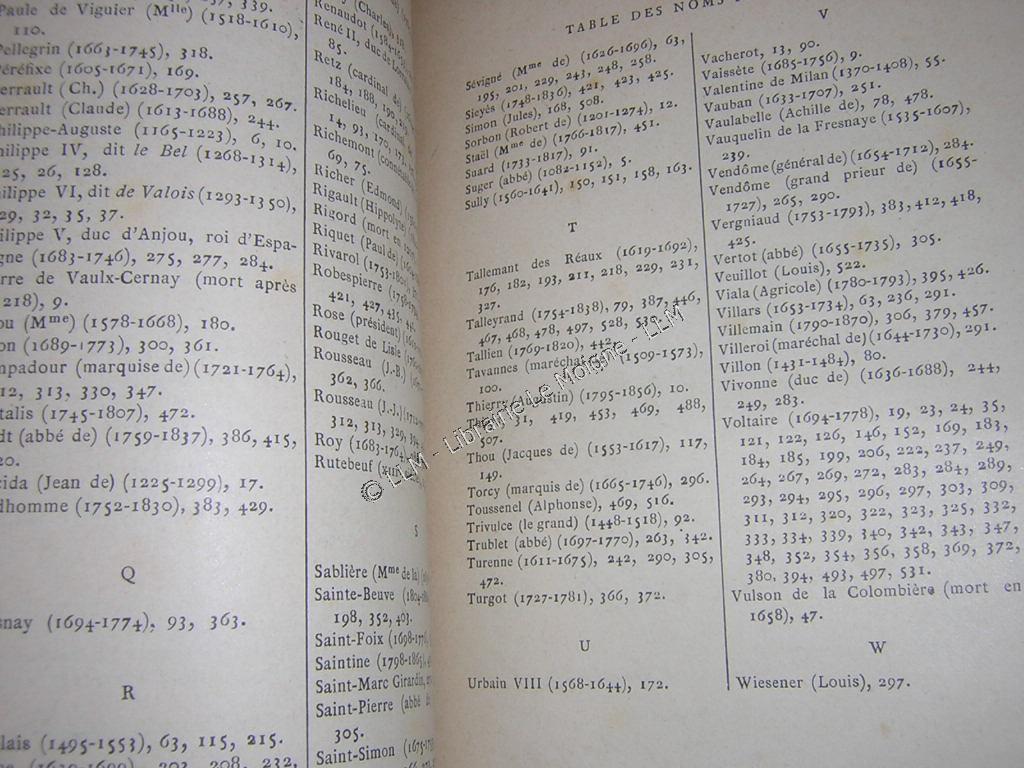 339.
Paule de Viguier (Mlle) (1518-1610),
110.
Pellegrin (1663-1745), 318.
Péréfixe (1605-1671), 169.
Perrault (Ch.) (1628-1703), 257, 267.
Perrault (Claude) (1613-1688), 244.
Philippe-Auguste (1165-1223), 6, 10.
Philippe IV, dit le Bel (1268-1314),
25, 26, 128.
Philippe VI, dit de Valois (1293-1350),
29, 32, 35, 37.
Philippe V, duc d'Anjou, roi d'Espa-
gne (1683-1746), 275, 277, 284.
erre de Vaulx-Cernay (mort après
1218), 9.
ou (Mme) (1578-1668), 180.
on (1689-1773), 300, 361.
mpadour (marquise de) (1721-1764),
12, 313, 330, 347.
talis (1745-1807), 472.
dt (abbé de) (1759-1837), 386, 415,
20.
cida (Jean de) (1225-1299), 17.
dhomme (1752-1830), 383, 429.
Q
snay (1694-1774), 93, 363.
R
lais (1495-1553), 63, 115, 215.
(1639-1699), 203, 208, 232,
Renaudot
René II, duc de Lorr
85.
Retz (cardinal de)
184, 188, 190,
Richelieu (cardinal
14, 93, 170,
Richemont (connéta
69, 75.
Richer (Edmond)
Rigault (Hippolyte)
Rigord (mort en
Riquet (Paul de)
Rivarol (1753-180
Robespierre
421, 427, 435,
Rose (président)
Rouget de Lisle
Rousseau (J.-B.)
362, 366.
Rousseau (J.-J.)
312, 313, 329,
Roy (1683-1764),
Rutebeuf
S
Sablière (Mme de la)
Sainte-Beuve (1804-
198, 352, 403.
Saint-Foix (1698-
Saintine (1798-
Saint-Marc Girardin,
Saint-Pierre (abbé
305.
Saint-Simon (1675-
TABLE DES NOMS
Sévigné (Mme de) (1626-1696), 63,
195, 201, 229, 243, 248, 258.
Sieyès (1748-1836), 421, 423, 425.
Simon (Jules), 168, 508.
Sorbon (Robert de) (1201-1274), 12.
Staël (Mme de) (1766-1817), 451.
Suard (1733-1817), 91.
Suger (abbé) (1082-1152), 5.
Sully (1560-1641), 150, 151, 158, 163.
T
Tallemant des Réaux (1619-1692),
176, 182, 193, 211, 218, 229, 231,
327.
Talleyrand (1754-1838), 79, 387, 446,
467, 468, 478, 497, 528, 530.
Tallien (1769-1820), 442.
Tavannes (maréchal de) (1509-1573),
100.
Thierry (Augustin) (1795-1856), 10.
31, 419, 453, 469, 488,
507.
Thou (Jacques de) (1553-1617), 117,
149.
Torcy (marquis de) (1665-1746), 296.
Toussenel (Alphonse), 469, 516.
Trivulce (le grand) (1448-1518), 92.
Trublet (abbé) (1697-1770), 263, 342.
Turenne (1611-1675), 242, 290, 305,
472.
Turgot (1727-1781), 366, 372.
U
Urbain VIII (1568-1644), 172.
V
Vacherot, 13, 90.
Vaissète (1685-1756), 9.
Valentine de Milan (1370-1408), 55.
Vauban (1633-1707), 251.
Vaulabelle (Achille de), 78, 478.
Vauquelin de la Fresnaye (1535-1607),
239.
Vendôme (général de) (1654-1712), 284.
Vendôme (grand prieur de) (1655-
1727), 265, 290.
Vergniaud (1753-1793), 383, 412, 418,
425.
Vertot (abbé) (1655-1735), 305.
Veuillot (Louis), 522.
Viala (Agricole) (1780-1793), 395, 426.
Villars (1653-1734), 63, 236, 291.
Villemain (1790-1870), 306, 379, 457.
Villeroi (maréchal de) (1644-1730), 291.
Villon (1431-1484), 80.
Vivonne (duc de) (1636-1688), 244,
249, 283.
Voltaire (1694-1778), 19, 23, 24, 35,
121, 122, 126, 146, 152, 169, 183,
184, 185, 199, 206, 222, 237, 249,
264, 267, 269, 272, 283, 284, 289,
293, 294, 295, 296, 297, 303, 309,
311, 312, 320, 322, 323, 325, 332,
333, 334, 339, 340, 342, 343, 347,
348, 352, 354, 356, 358, 369, 372,
380, 394, 493, 497, 531.
Vulson de la Colombière (mort en
1658), 47.
W
Wiesener (Louis), 297.
© LLM - Librairie Le Moigne - LLM